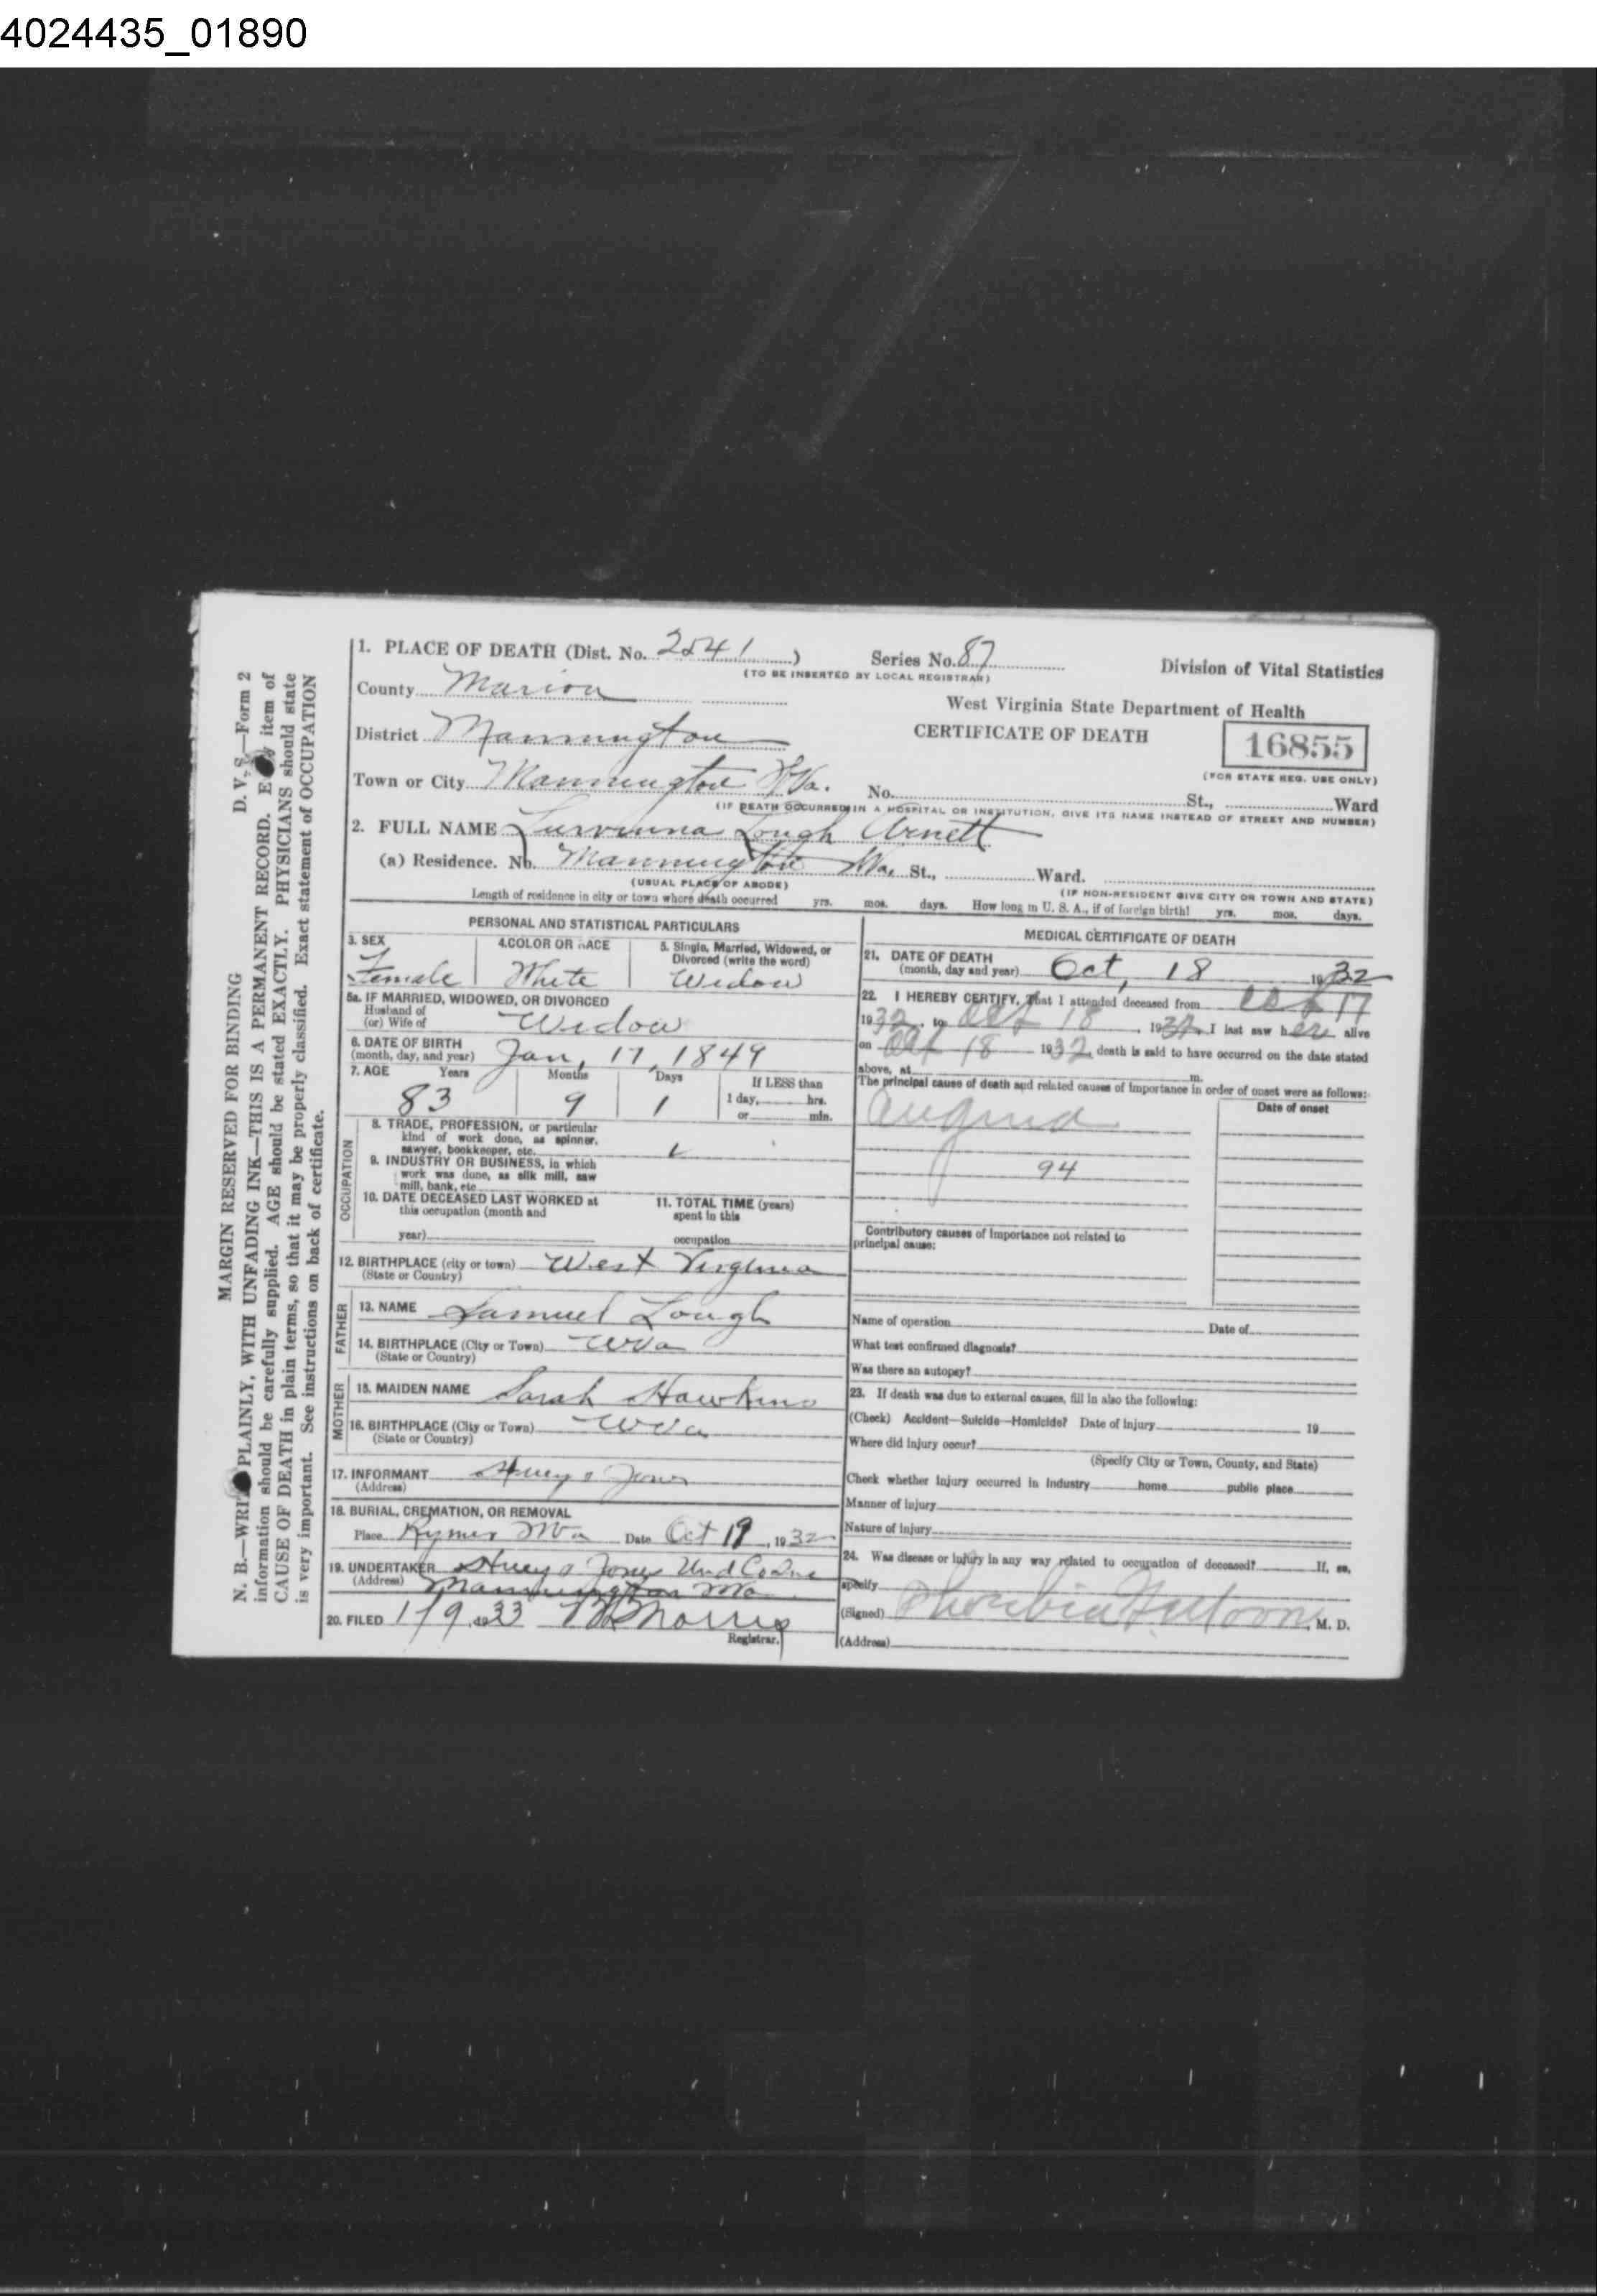 4024435_01890
MARGIN RESERVED FOR BINDING D. V. S.—Form 2
N. B.—WRITE PLAINLY, WITH UNFADING INK—THIS IS A PERMANENT RECORD. Every item of
information should be carefully supplied. AGE should be stated EXACTLY. PHYSICIANS should state
CAUSE OF DEATH in plain terms, so that it may be properly classified. Exact statement of OCCUPATION
is very important. See instructions on back of certificate.
1. PLACE OF DEATH (Dist. No. 2541) Series No. 87 Division of Vital Statistics
(TO BE INSERTED BY LOCAL REGISTRAR)
County Marion
West Virginia State Department of Health
District Mannington CERTIFICATE OF DEATH 16855
(FOR STATE REG. USE ONLY)
Town or City Mannington W Va. No. St., Ward
(IF DEATH OCCURRED IN A HOSPITAL OR INSTITUTION, GIVE ITS NAME INSTEAD OF STREET AND NUMBER)
2. FULL NAME Lurvinna Lough Arnett
(a) Residence. No. Mannington W Va. St., Ward.
(USUAL PLACE OF ABODE) (IF NON-RESIDENT GIVE CITY OR TOWN AND STATE)
Length of residence in city or town where death occurred yrs. mos. days. How long in U. S. A., if of foreign birth? yrs. mos. days.
PERSONAL AND STATISTICAL PARTICULARS
3. SEX 4. COLOR OR RACE 5. Single, Married, Widowed, or
Divorced (write the word)
Female White Widow
5a. IF MARRIED, WIDOWED, OR DIVORCED
Husband of
(or) Wife of Widow
6. DATE OF BIRTH
(month, day, and year) Jan, 17, 1849
7. AGE Years Months Days If LESS than
1 day, hrs.
or min.
83 9 1
OCCUPATION
8. TRADE, PROFESSION, or particular
kind of work done, as spinner,
sawyer, bookkeeper, etc.
9. INDUSTRY OR BUSINESS, in which
work was done, as silk mill, saw
mill, bank, etc
10. DATE DECEASED LAST WORKED at
this occupation (month and
year)
11. TOTAL TIME (years)
spent in this
occupation
12. BIRTHPLACE (city or town) West Virginia
(State or Country)
FATHER
13. NAME Samuel Lough
14. BIRTHPLACE (City or Town) W Va
(State or Country)
MOTHER
15. MAIDEN NAME Sarah Hawkins
16. BIRTHPLACE (City or Town) W Va
(State or Country)
17. INFORMANT Jones
(Address)
18. BURIAL, CREMATION, OR REMOVAL
Place Rymer W Va Date Oct 19, 1932
19. UNDERTAKER Jones Und Co Inc
(Address) Mannington W Va
20. FILED 1/9, 1933 Morris
Registrar.
MEDICAL CERTIFICATE OF DEATH
21. DATE OF DEATH
(month, day and year) Oct, 18 1932
22. I HEREBY CERTIFY, That I attended deceased from Oct 17
1932, to Oct 18, 1932 I last saw her alive
on Oct 18 1932, death is said to have occurred on the date stated
above, at m.
The principal cause of death and related causes of importance in order of onset were as follows:
Date of onset
Angina
94
Contributory causes of importance not related to
principal cause:
Name of operation Date of
What test confirmed diagnosis?
Was there an autopsy?
23. If death was due to external causes, fill in also the following:
(Check) Accident—Suicide—Homicide? Date of injury 19
Where did injury occur?
(Specify City or Town, County, and State)
Check whether injury occurred in industry home public place
Manner of injury
Nature of injury
24. Was disease or injury in any way related to occupation of deceased? If, so,
specify
(Signed) M. D.
(Address)